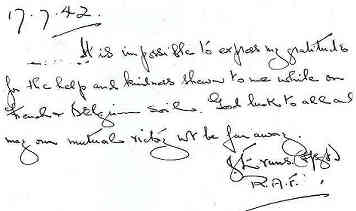 17.7.42.
It is impossible to express my gratitude
for the help and kindness shown to me while on
French & Belgium soil. Good luck to all and
may our mutual victory not be far away.
R.A.F.